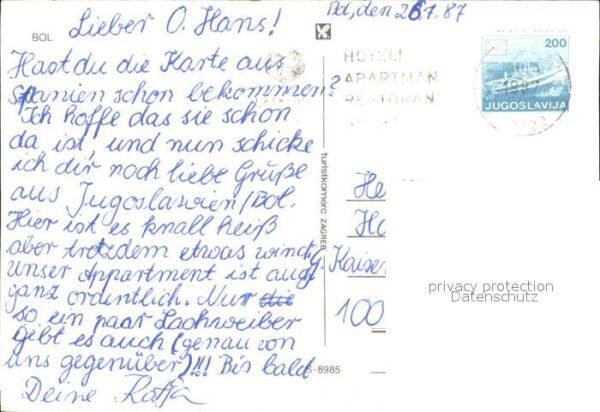 Bol, den 26.7.87
Lieber O. Hans!
BOL
Hast du die Karte aus
Spanien schon bekommen?
Ich hoffe das sie schon
da ist, und nun schicke
ich dir noch liebe Grüße
aus Jugoslawien/Bol.
Hier ist es knall heiß
aber trotzdem etwas windig.
Unser Appartment ist auch
ganz ordentlich. Nur die
so ein paar Lachweiber
gibt es auch (genau von
uns gegenüber)!!! Bis bald
Deine Katja
HOTELI
APARTMAN
RESTORANI
200
JUGOSLAVIJA
turistkomerc ZAGREB
S-8985
He
Ha
Kaiser
100
privacy protection
Datenschutz